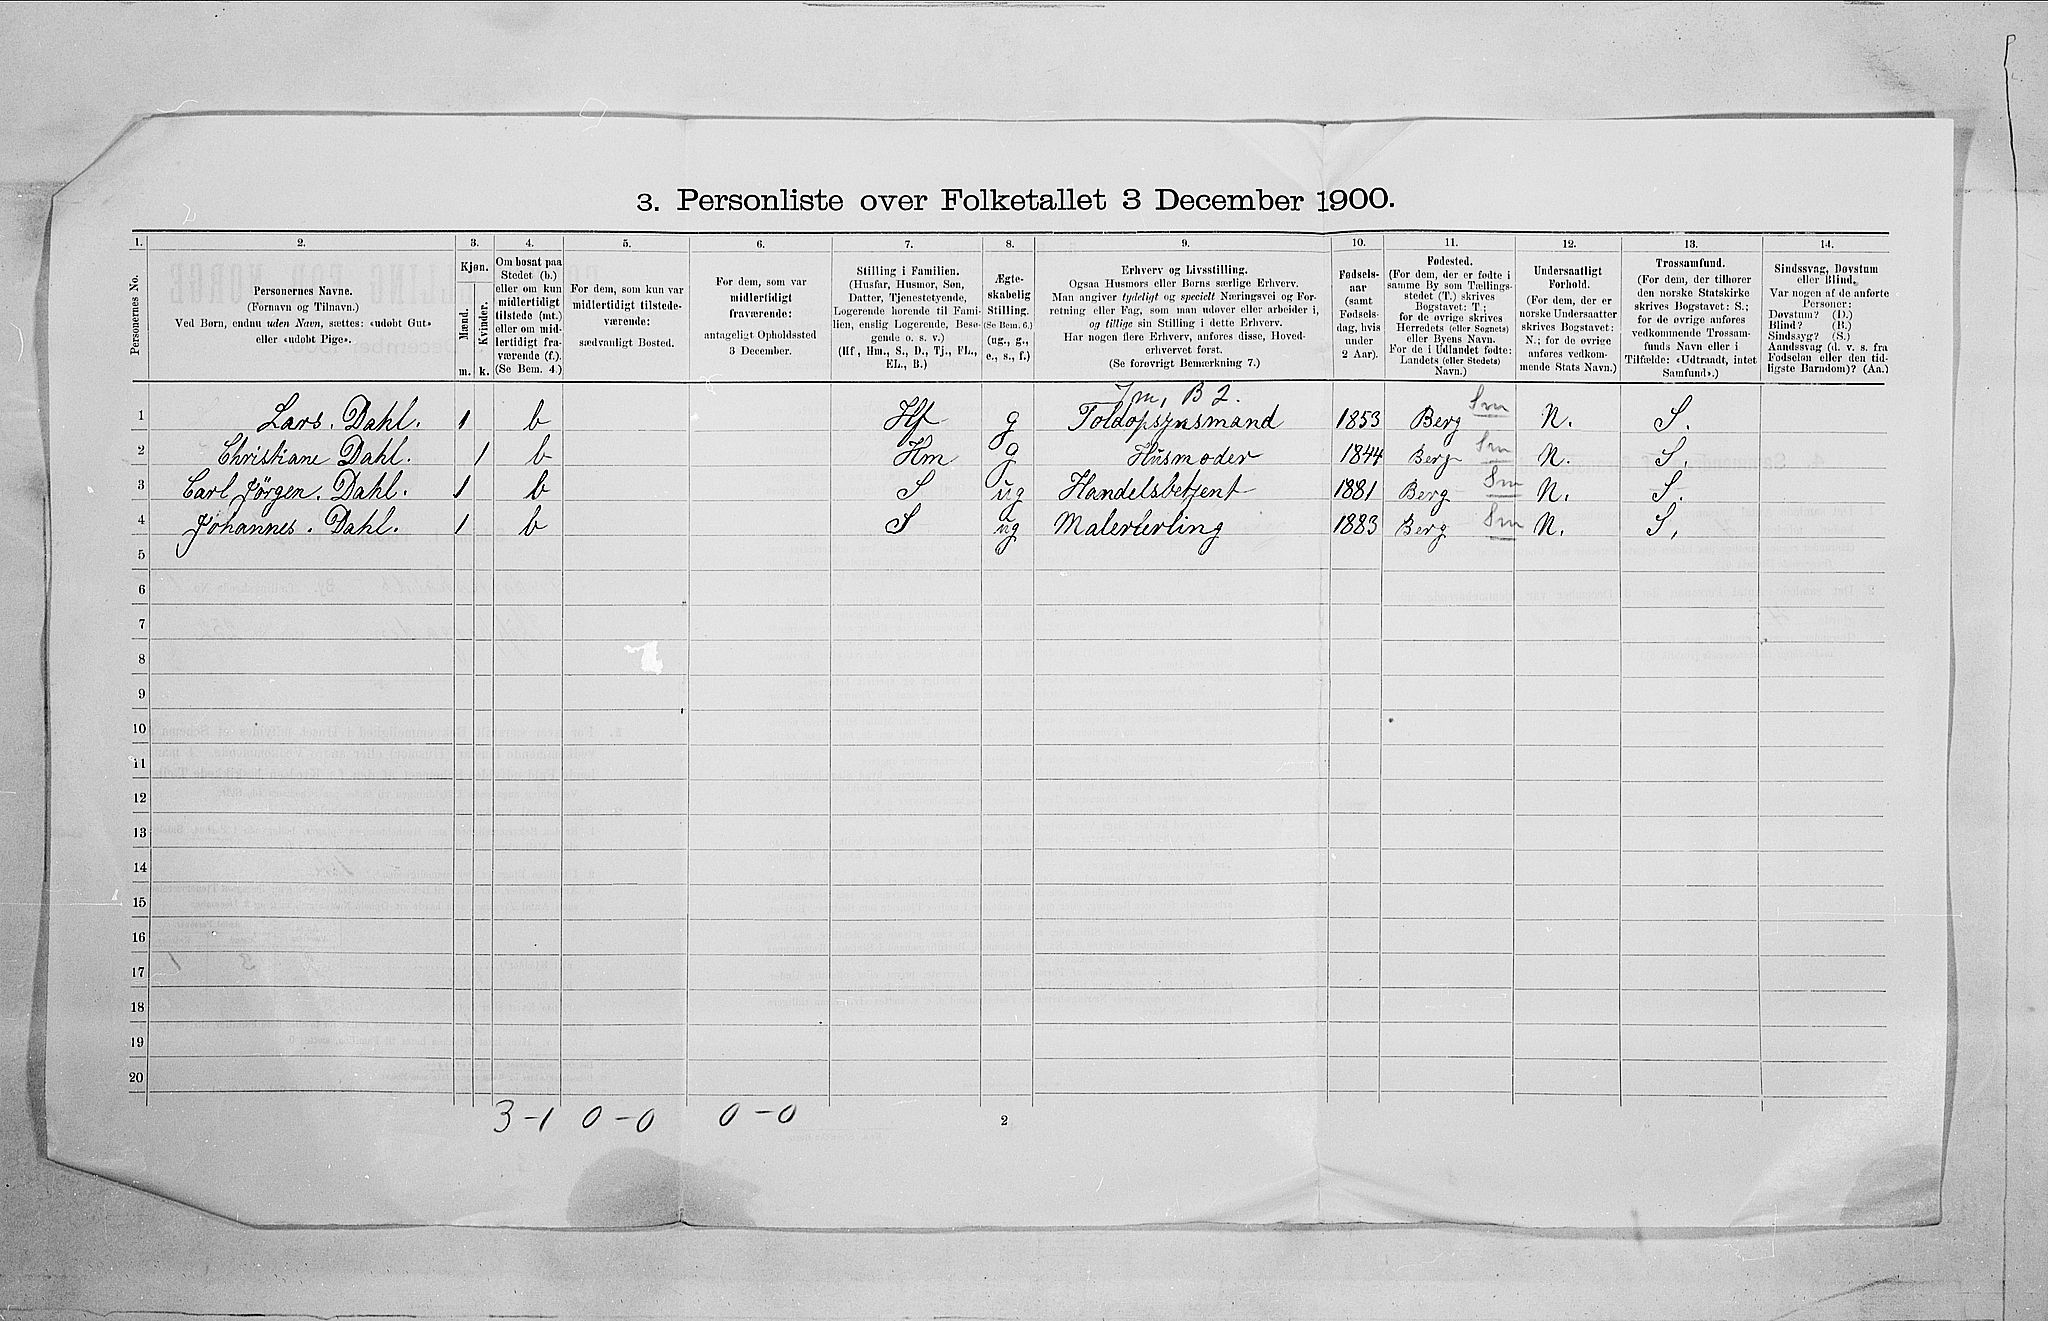 3. Personliste over Folketallet 3 December 1900.
1. 2. 3. 4. 5. 6. 7. 8. 9. 10. 11. 12. 13. 14.
Personernes No.
Personernes Navne.
(Fornavn og Tilnavn.)
Ved Børn, endnu uden Navn, sættes: «udøbt Gut»
eller «udøbt Pige».
Kjøn.
Mænd.
Kvinder.
m. k.
Om bosat paa
Stedet (b.)
eller om kun
midlertidigt
tilstede (mt.)
eller om mid-
lertidigt fra-
værende (f.).
(Se Bem. 4.)
For dem, som kun var
midlertidigt tilstede-
værende:
sædvanligt Bosted.
For dem, som var
midlertidigt
fraværende:
antageligt Opholdssted
3 December.
Stilling i Familien.
(Husfar, Husmor, Søn,
Datter, Tjenestetyende,
Logerende hørende til Fami-
lien, enslig Logerende, Besø-
gende o. s. v.)
(Hf., Hm., S., D., Tj., FL.,
EL., B.)
Ægte-
skabelig
Stilling.
(Se Bem. 6.)
(ug., g.,
e., s., f.)
Erhverv og Livsstilling.
Ogsaa Husmors eller Børns særlige Erhverv.
Man angiver tydeligt og specielt Næringsvei og For-
retning eller Fag, som man udøver eller arbeider i,
og tillige sin Stilling i dette Erhverv.
Har nogen flere Erhverv, anføres disse, Hoved-
erhvervet først.
(Se forøvrigt Bemærkning 7.)
Fødsels-
aar
(samt
Fødsels-
dag, hvis
under
2 Aar).
Fødested.
(For dem, der er fødte i
samme By som Tællings-
stedet (T.) skrives
Bogstavet: T.;
for de øvrige skrives
Herredets (eller Sognets)
eller Byens Navn.
For de i Udlandet fødte:
Landets (eller Stedets)
Navn.)
Undersaatligt
Forhold.
(For dem, der er
norske Undersaatter
skrives Bogstavet:
N.; for de øvrige
anføres vedkom-
mende Stats Navn.)
Trossamfund.
(For dem, der tilhører
den norske Statskirke
skrives Bogstavet: S.;
for de øvrige anføres
vedkommende Trossam-
funds Navn eller i
Tilfælde: «Udtraadt, intet
Samfund».)
Sindssvag, Døvstum
eller Blind.
Var nogen af de anførte
Personer:
Døvstum? (D.)
Blind? (B.)
Sindssyg? (S.)
Aandssvag (d. v. s. fra
Fødselen eller den tid-
ligste Barndom)? (Aa.)
Im, B 2.
1 Lars. Dahl. 1 b Hf g Toldopsynsmand 1853 Berg Sm N. S.
2 Christiane Dahl. 1 b Hm g Husmoder 1844 Berg Sm N. S.
3 Carl Jörgen. Dahl. 1 b S ug Handelsbetjent 1881 Berg Sm N. S.
4 Johannes. Dahl. 1 b S ug Malerlerling 1883 Berg Sm N. S,
5
6
7
8
9
10
11
12
13
14
15
16
17
18
19
20
3-1 0-0 0-0
2